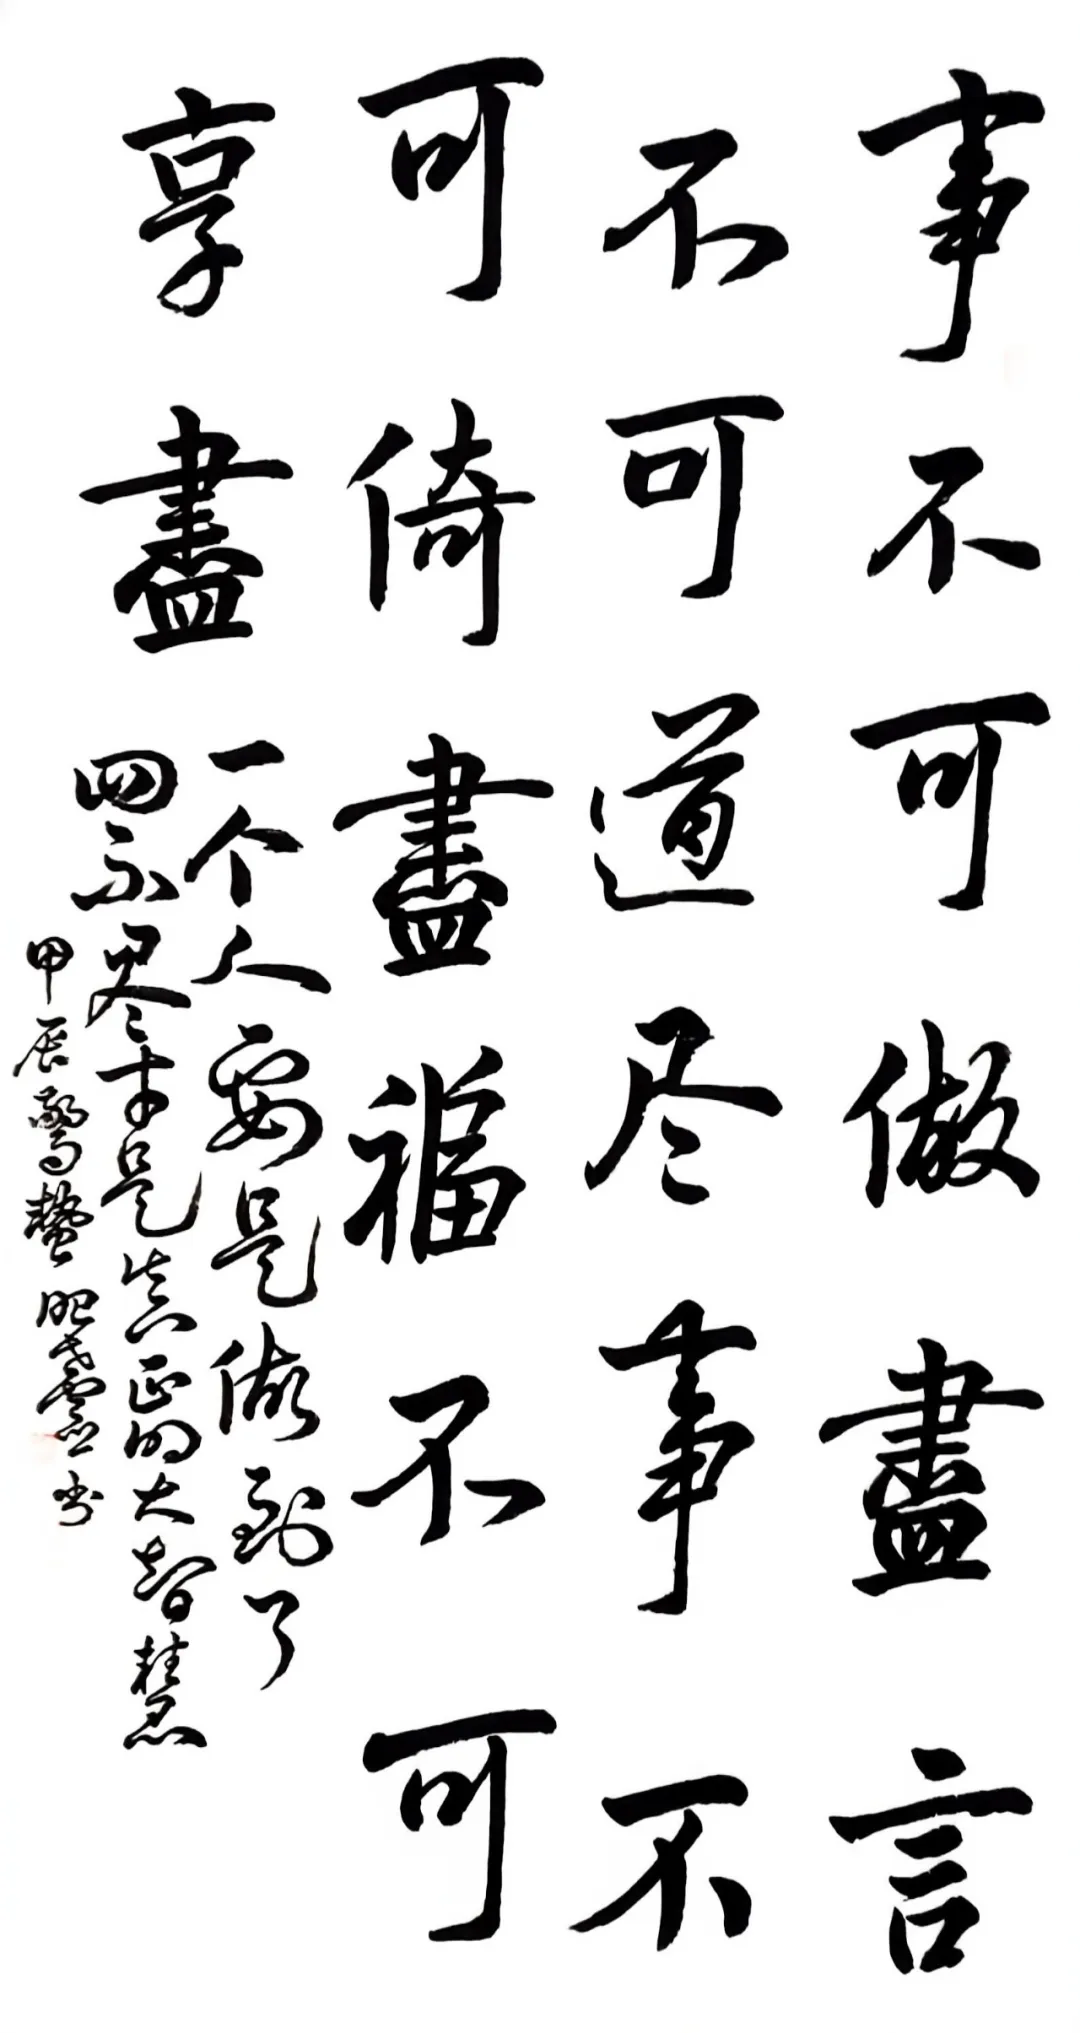 事不可做盡言
不可道尽事不
可倚盡福不可
享盡
一个人要是做到了
四不尽才是真正的大智慧
甲辰驚蟄书